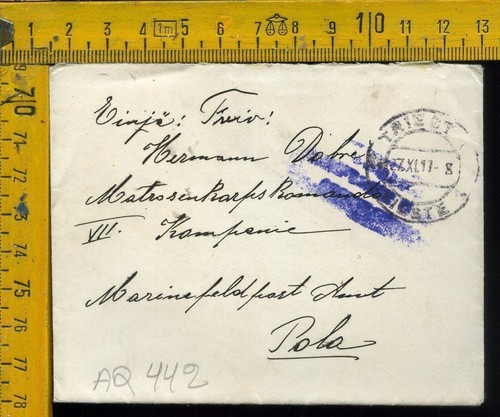 1 2 3 4 1m 5 6 7 8 9 10 11 12 13
70
71
72
73
74
75
76
77
78
Einjä: Freiw:
Hermann Dobre
Matrosenkorpskomando
VII. Kompanie
Marinefeldpost Amt
Pola
TRIEST
7.XI.17- 8
TRIESTE
AQ 442